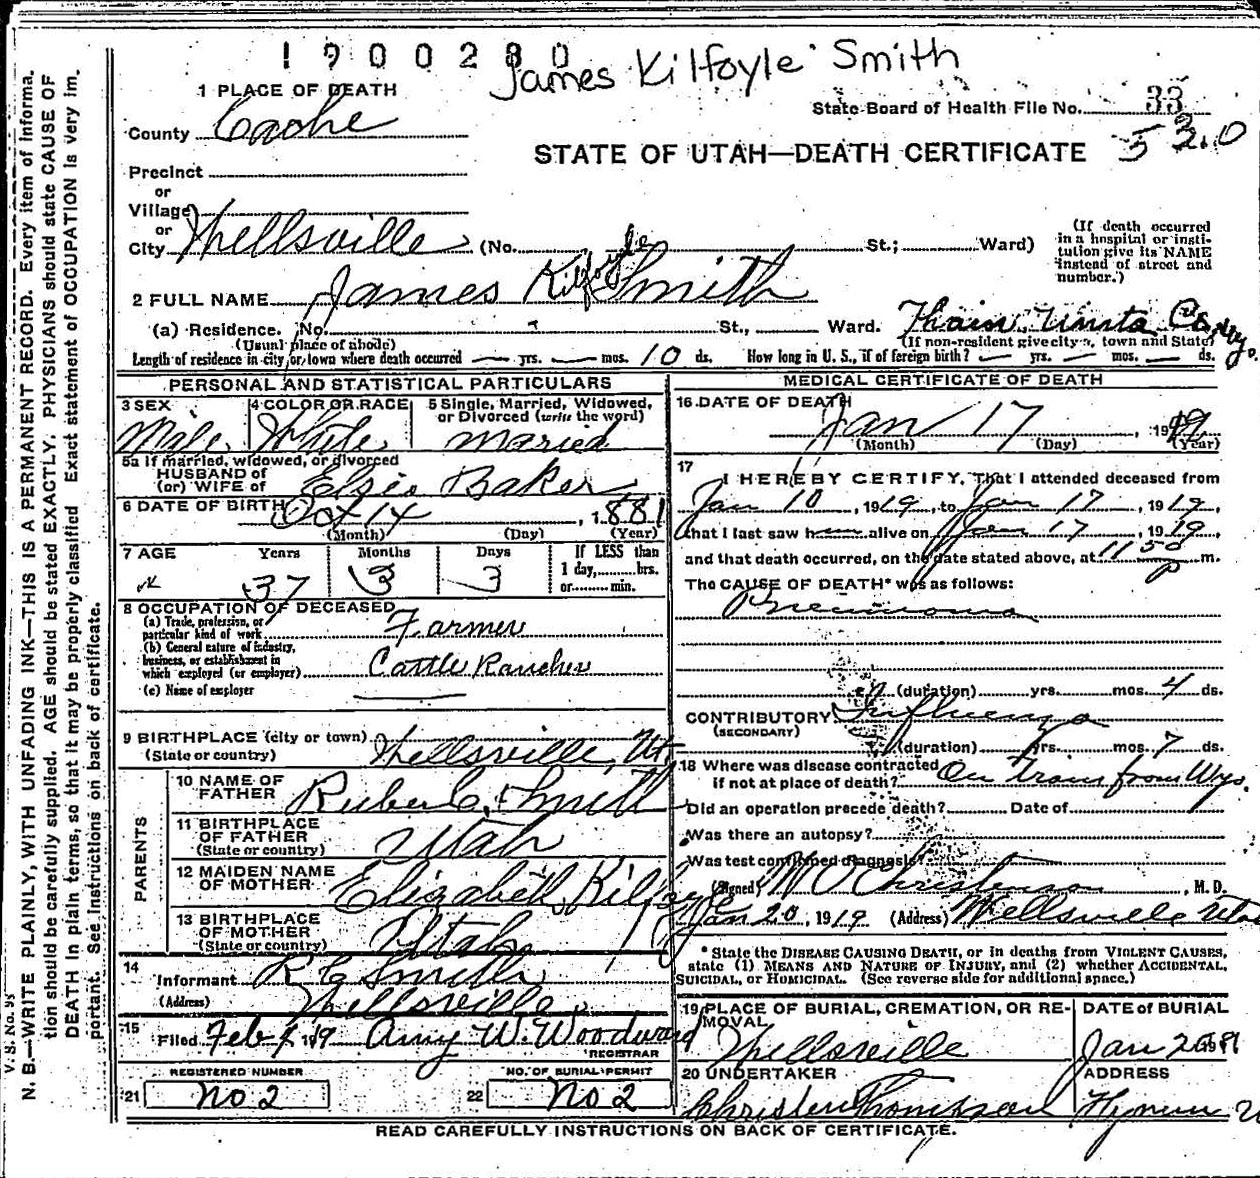 1900280
James Kilfoyle Smith
1 PLACE OF DEATH
State Board of Health File No. 33
County Cache
STATE OF UTAH—DEATH CERTIFICATE 530
Precinct
or
Village
or
City Wellsville (No. St.; Ward)
(If death occurred in a hospital or insti-tution give its NAME instead of street and number.)
2 FULL NAME James Kilfoyle Smith
(a) Residence. No. St., Ward. Thain, Uinta Co. Wyo.
(Usual place of abode) (If non-resident give city, town and State)
Length of residence in city or town where death occurred — yrs. — mos. 10 ds. How long in U. S., if of foreign birth? — yrs. — mos. — ds.
PERSONAL AND STATISTICAL PARTICULARS
3 SEX Male
4 COLOR OR RACE White
5 Single, Married, Widowed, or Divorced (write the word) Maried
5a If married, widowed, or divorced
HUSBAND of
(or) WIFE of Elsie Baker
6 DATE OF BIRTH Oct 14, 1881
(Month) (Day) (Year)
7 AGE Years Months Days If LESS than
37 3 3 1 day, hrs.
or min.
8 OCCUPATION OF DECEASED
(a) Trade, profession, or particular kind of work Farmer
(b) General nature of industry, business, or establishment in which employed (or employer) Cattle Rancher
(c) Name of employer
9 BIRTHPLACE (city or town) Wellsville, Ut
(State or country)
PARENTS
10 NAME OF FATHER Ruben C. Smith
11 BIRTHPLACE OF FATHER (State or country) Utah
12 MAIDEN NAME OF MOTHER Elizabeth Kilfoyle
13 BIRTHPLACE OF MOTHER (State or country) Utah
14 Informant R C Smith
(Address) Wellsville
15 Filed Feb 1 19 Amy W. Woodward
REGISTRAR
REGISTERED NUMBER NO. OF BURIAL PERMIT
21 No 2 22 No 2
MEDICAL CERTIFICATE OF DEATH
16 DATE OF DEATH
Jan 17, 1919
(Month) (Day) (Year)
17 I HEREBY CERTIFY, That I attended deceased from
Jan 10, 1919, to Jan 17, 1919,
that I last saw him alive on Jan 17, 1919,
and that death occurred, on the date stated above, at 1150 P m.
The CAUSE OF DEATH* was as follows:
Pneumonia
(duration) yrs. mos. 4 ds.
CONTRIBUTORY Influenza
(SECONDARY)
(duration) yrs. mos. 7 ds.
18 Where was disease contracted
if not at place of death? On train from Wyo.
Did an operation precede death? Date of
Was there an autopsy?
Was test confirmed diagnosis?
(Signed) W O Christenson, M. D.
Jan 20, 1919 (Address) Wellsville Utah
* State the DISEASE CAUSING DEATH, or in deaths from VIOLENT CAUSES,
state (1) MEANS AND NATURE OF INJURY, and (2) whether ACCIDENTAL,
SUICIDAL, or HOMICIDAL. (See reverse side for additional space.)
19 PLACE OF BURIAL, CREMATION, OR RE-MOVAL
Wellsville
DATE of BURIAL
Jan 20
20 UNDERTAKER
Christen Thompson
ADDRESS
Hyrum U
READ CAREFULLY INSTRUCTIONS ON BACK OF CERTIFICATE.
V. S. No. 95
N. B.—WRITE PLAINLY, WITH UNFADING INK—THIS IS A PERMANENT RECORD. Every item of informa-
tion should be carefully supplied. AGE should be stated EXACTLY. PHYSICIANS should state CAUSE OF
DEATH in plain terms, so that it may be properly classified. Exact statement of OCCUPATION is very im-
portant. See instructions on back of certificate.